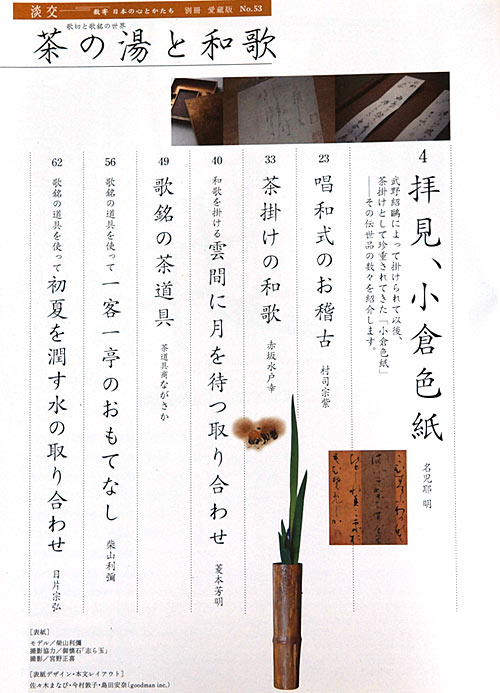 淡交 数寄 日本の心とかたち 別冊 愛蔵版 No.53
歌切と歌銘の世界
茶の湯と和歌
4
拝見、小倉色紙
名児耶 明
武野紹鷗によって掛けられて以後、
茶掛けとして珍重されてきた「小倉色紙」
――その伝世品の数々を紹介します。
23
唱和式のお稽古
村司宗紫
33
茶掛けの和歌
赤坂水戸幸
40
和歌を掛ける
雲間に月を待つ取り合わせ
菱本芳明
49
歌銘の茶道具
茶道具商ながさか
56
歌銘の道具を使って
一客一亭のおもてなし
柴山利彌
62
歌銘の道具を使って
初夏を潤す水の取り合わせ
目片宗弘
[表紙]
モデル/柴山利彌
撮影協力/御懐石「志ら玉」
撮影/宮野正喜
[表紙デザイン・本文レイアウト]
佐々木まなび・今村敦子・島田安奈(goodman inc.)